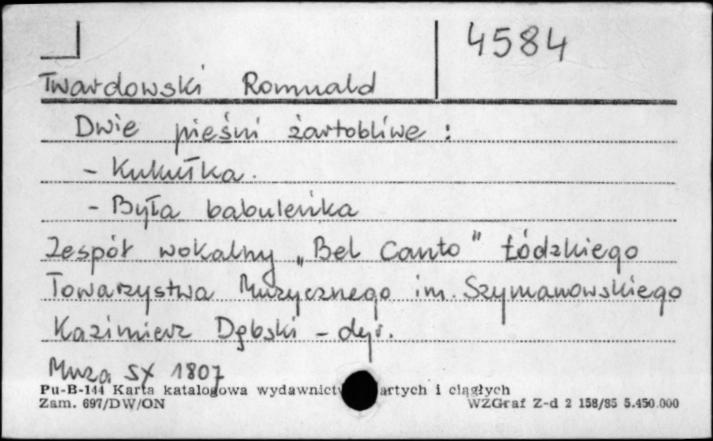 4584
Twardowski Romuald
Dwie pieśni żartobliwe :
- Kukułka.
- Była babuleńka
Zespół wokalny „Bel Canto" Łódzkiego
Towarzystwa Muzycznego im. Szymanowskiego
Kazimierz Dębski - dyr.
Muza SX 1807
Pu-B-144 Karta katalogowa wydawnict artych i ciągłych
Zam. 697/DW/ON WZGraf Z-d 2 158/85 5.450.000